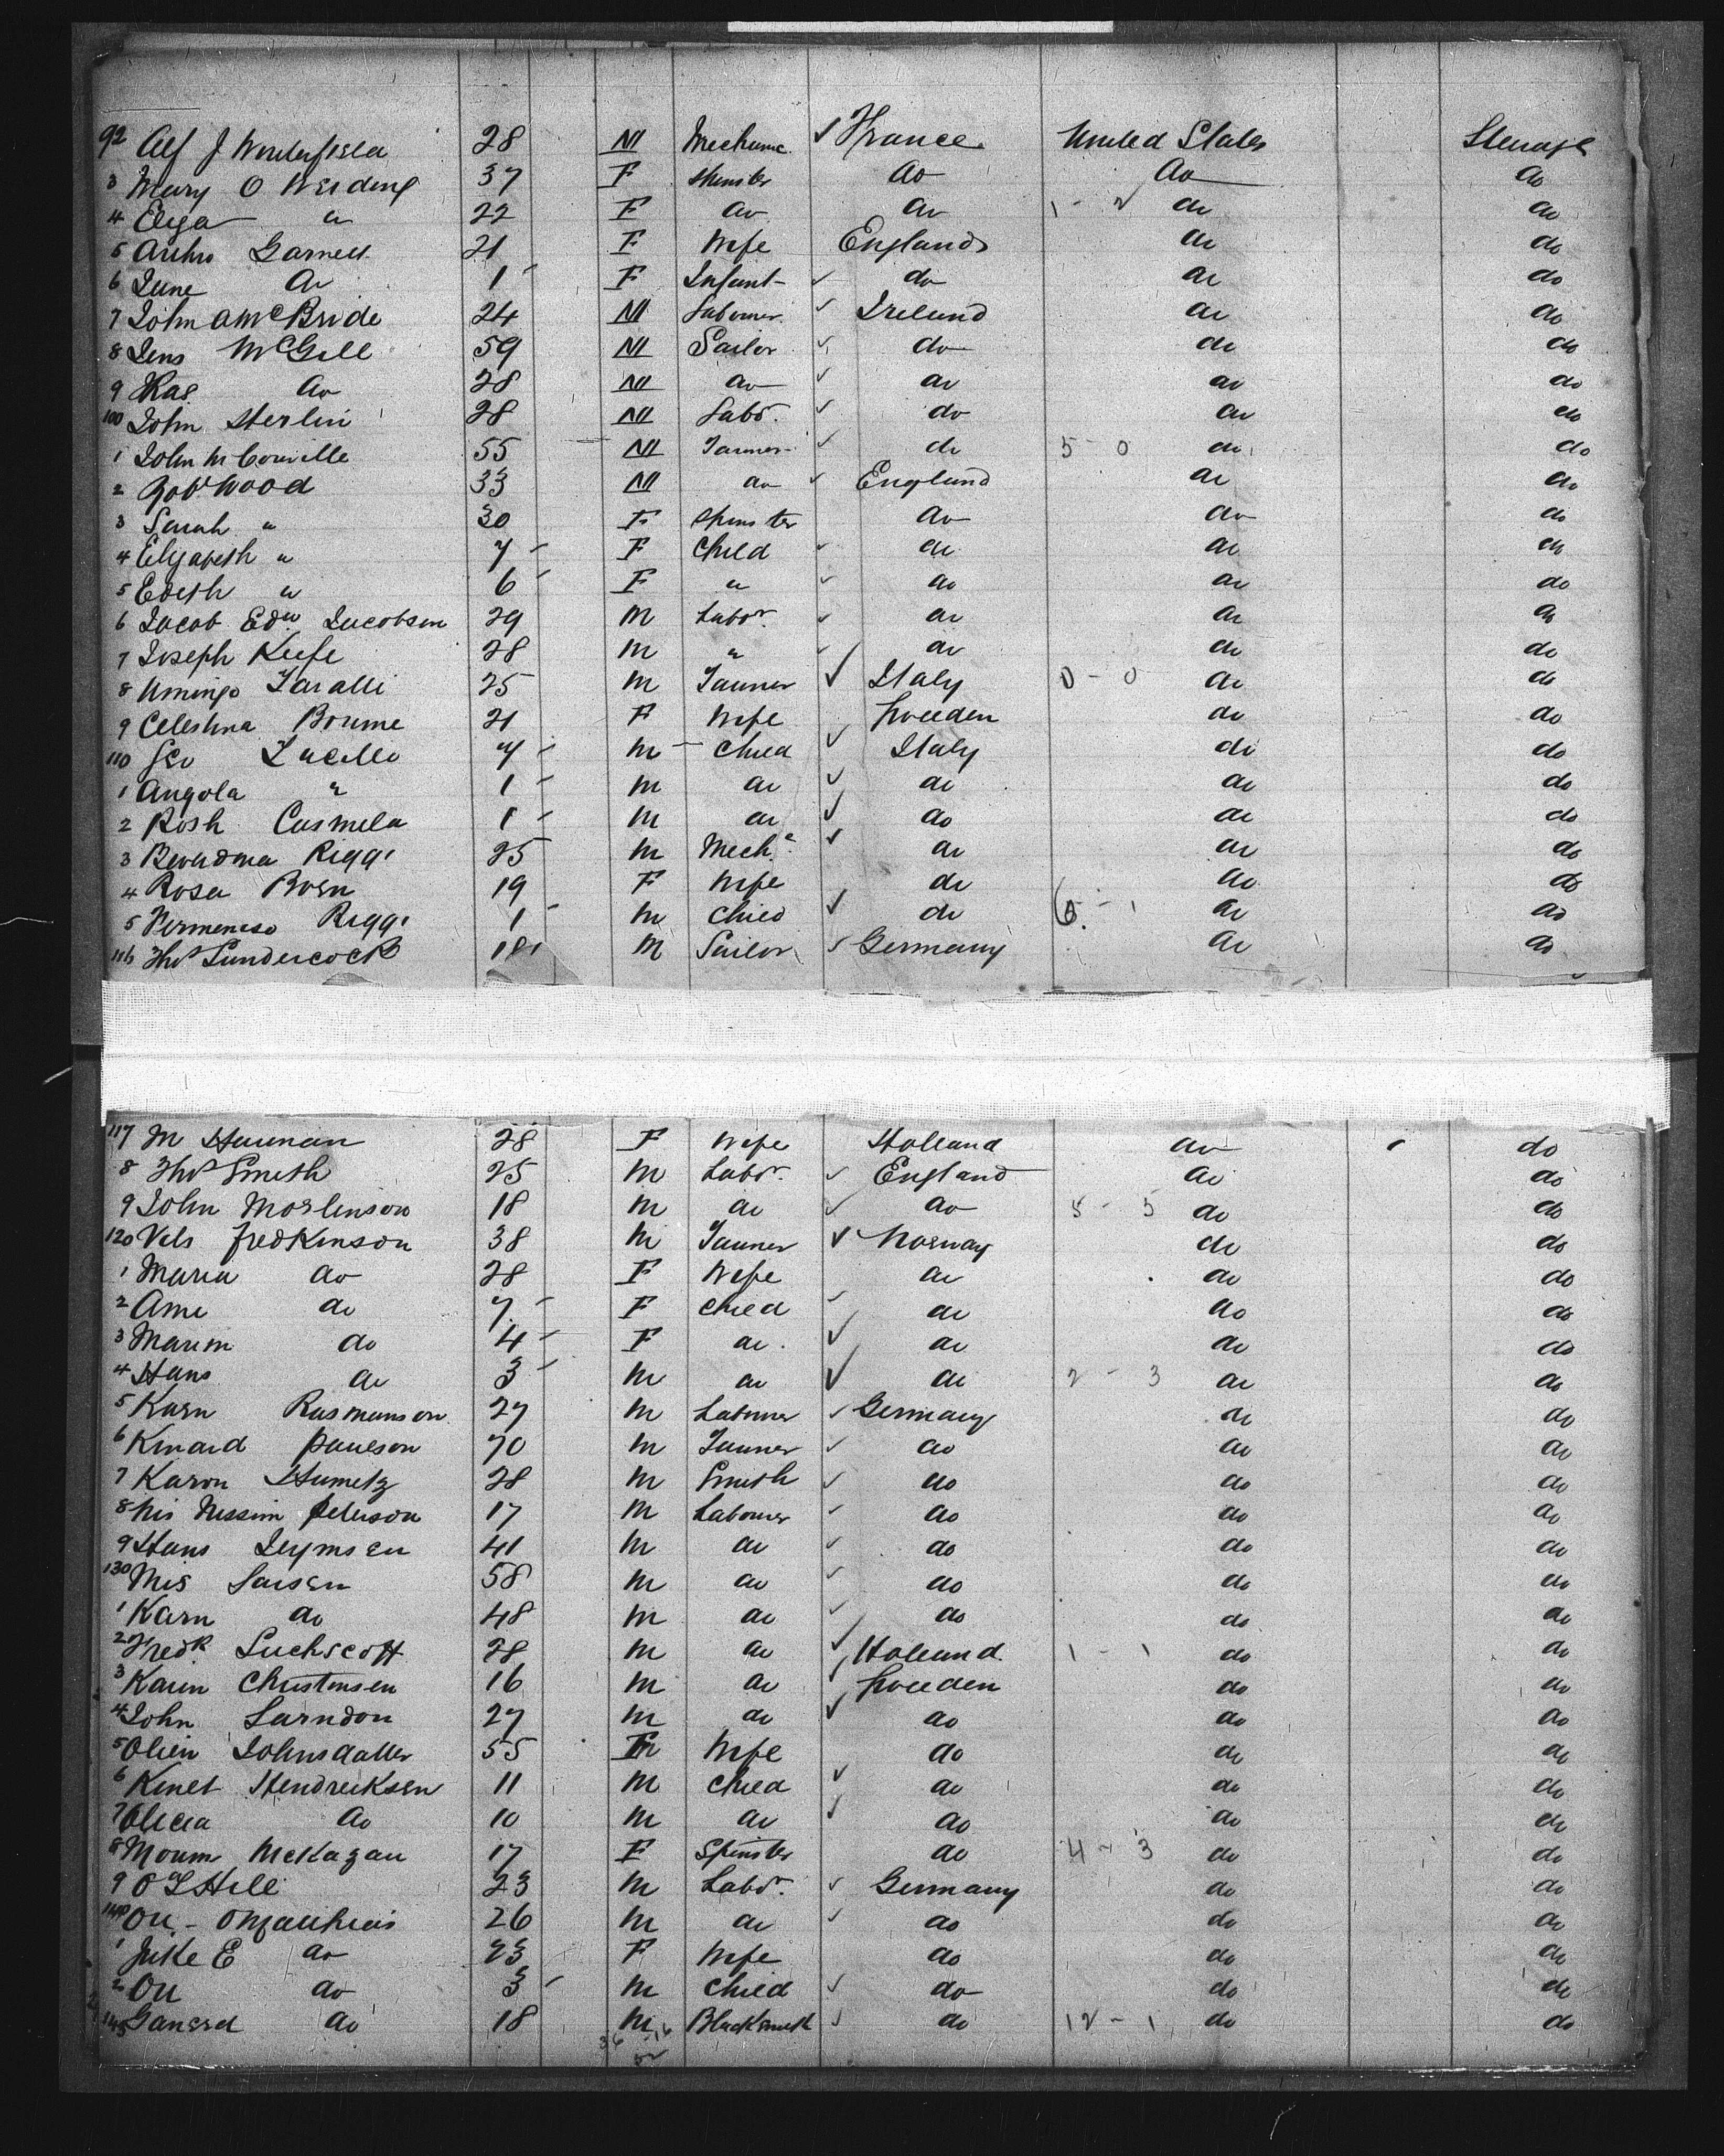 92 Alf J Winterfield 28 M Mechanic ✓ France United States Steerage
3 Mary O Werding 37 F Spinster do do do
4 Eliza " 22 F do do 1 - 2 do do
5 Arthr Garnett 21 F Wife England do do
6 June do 1 F Infant ✓ do do do
7 John A McBride 24 M Labourer ✓ Ireland do do
8 Jens McGill 59 M Sailor ✓ do do do
9 Has do 28 M do ✓ do do do
100 John Sterlin 28 M Labr. ✓ do do do
1 John McConville 55 M Farmer ✓ do 5 - 0 do do
2 Robt Wood 33 M do ✓ England do do
3 Sarah " 30 F Spinster do do do
4 Elizabeth " 7 F Child ✓ do do do
5 Edith " 6 F " ✓ do do do
6 Jacob Edw Jacobsen 29 M Labr. ✓ do do do
7 Joseph Keefe 28 M " ✓ do do do
8 Umingo Taralli 25 M Farmer ✓ Italy 0 - 0 do do
9 Celestina Bourne 21 F Wife Sweeden do do
110 Geo Lucillo 7 M Child ✓ Italy do do
1 Angola " 1 M do ✓ do do do
2 Rosh Casmela 1 M do ✓ do do do
3 Berradma Riggi 25 M Mech.c ✓ do do do
4 Rosa Born 19 F Wife do do do
5 Vermeneso Riggi 1 M Child ✓ do 6 - 1 do do
116 Thos Sundercock 18 M Sailor ✓ Germany do do
117 M Hauman 28 F Wife Holland do do
8 Thos Smith 25 M Labr. ✓ England do do
9 John Morlinson 18 M do ✓ do 5 - 5 do do
120 Nels Fredkinson 38 M Farmer ✓ Norway do do
1 Maria do 28 F Wife do do do
2 Ame do 7 F Child ✓ do do do
3 Marim do 4 F do ✓ do do do
4 Hans do 3 M do ✓ do 2 - 3 do do
5 Karn Rasmunson 27 M Labourer ✓ Germany do do
6 Knaid Paulson 70 M Farmer ✓ do do do
7 Karon Humetz 28 M Smith ✓ do do do
8 Nis Nissim Peterson 17 M Labourer ✓ do do do
9 Hans Jeymsen 41 M do ✓ do do do
130 Nis Larsen 58 M do ✓ do do do
1 Karn do 48 M do ✓ do do do
2 Fredk Suchscott 28 M do ✓ Holland 1 - 1 do do
3 Karin Christensen 16 M do ✓ Sweeden do do
4 John Sarndon 27 M do ✓ do do do
5 Olien Johnsdatter 55 F Wife do do do
6 Knet Hendreiksen 11 M Child ✓ do do do
7 Olicia do 10 M do ✓ do do do
8 Moum McKagan 17 F Spinster do 4 - 3 do do
9 O L Hill 23 M Labr. ✓ Germany do do
140 Ou 26 M do ✓ do do do
1 Juke E do 23 F Wife do do do
2 Ou do 3 M Child ✓ do do do
143 Ganerd do 18 M Blacksmith ✓ do 12 - 1 do do
36 16
52